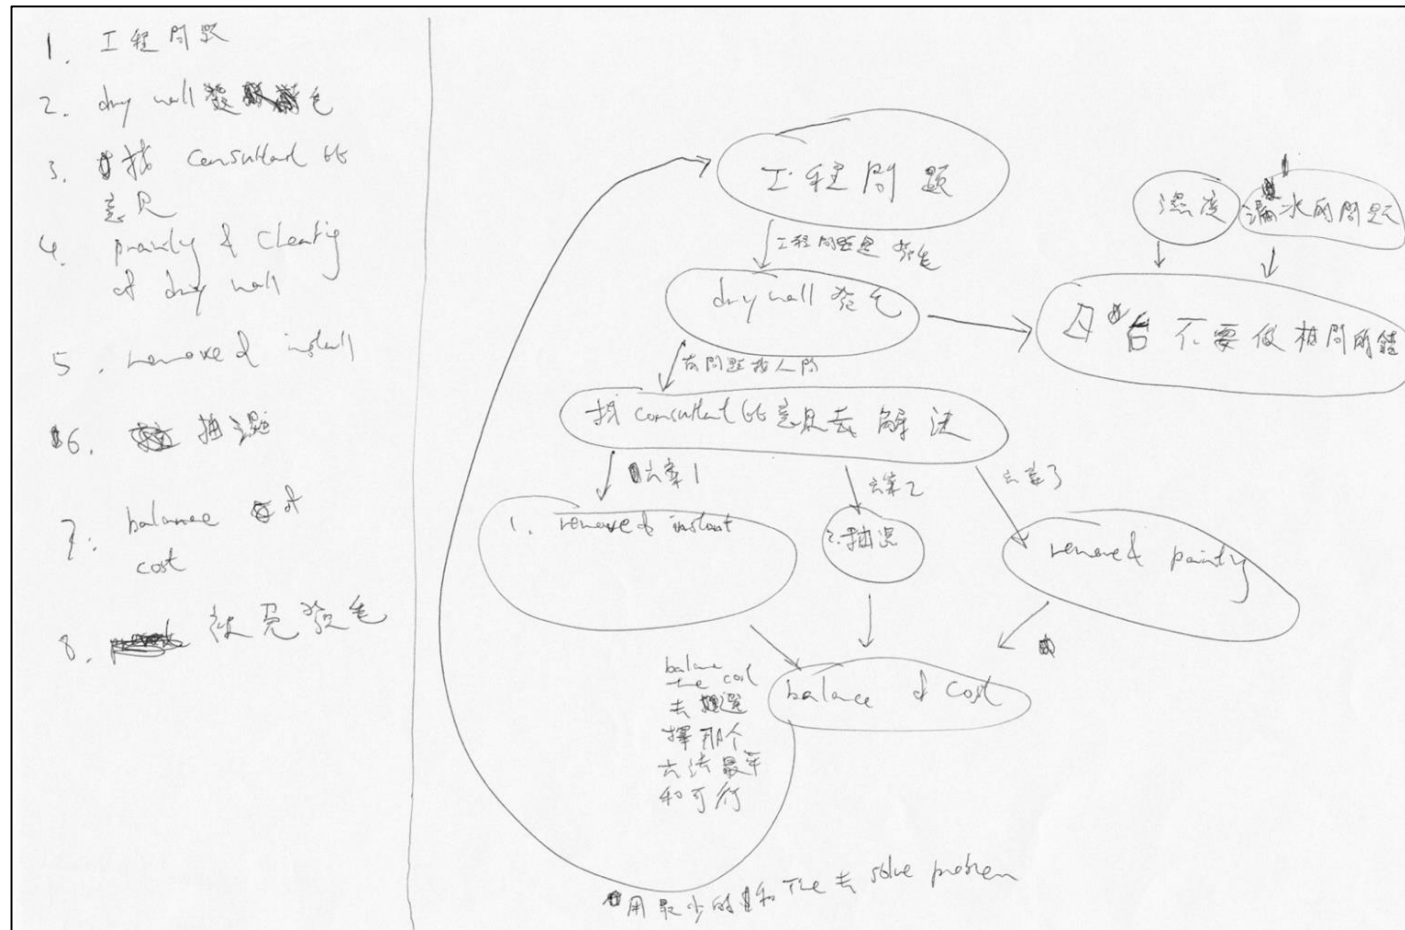 1. 工程問題
2. dry wall 發毛
3. 找 consultant 的
意見
4. painting & cleaning
of dry wall
5. remove & install
6. 抽濕
7. balance of
cost
8. 發毛
工程問題
濕度
漏水的問題
工程問題是 發毛
dry wall 發毛
不要做相同的錯
有問題找人問
找 consultant 的意見去解決
方案1
方案2
方案3
1. remove & install
2. 抽濕
remove & painting
balance of cost
balance
the cost
去選
擇那个
方法最平
和可行
用最少的 和 time 去 solve problem